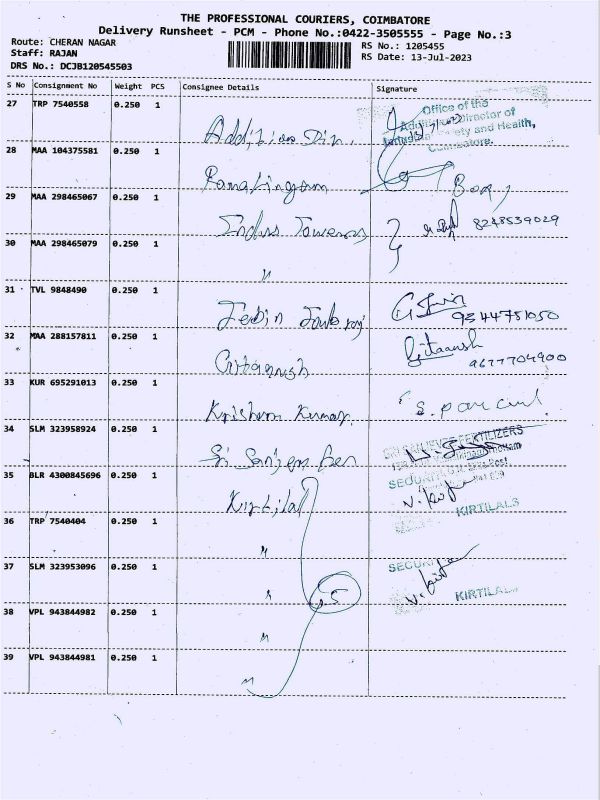 THE PROFESSIONAL COURIERS, COIMBATORE
Delivery Runsheet - PCM - Phone No.:0422-3505555 - Page No.:3
Route: CHERAN NAGAR
Staff: RAJAN
DRS No.: DCJB120545503
RS No.: 1205455
RS Date: 13-Jul-2023
S No Consignment No Weight PCS Consignee Details Signature
27 TRP 7540558 0.250 1
Office of the
Director of
Safety and Health,
Coimbatore.
28 MAA 104375581 0.250 1 Ramalingam
29 MAA 298465067 0.250 1 Indus Towers 8248539029
30 MAA 298465079 0.250 1 "
31 TVL 9848490 0.250 1 Jebin 9344781050
32 MAA 288157811 0.250 1 Gitaansh
9677704900
33 KUR 695291013 0.250 1 Krishna Kumar
34 SLM 323958924 0.250 1 Sri
FERTILIZERS
35 BLR 4300845696 0.250 1 Kirtilal
SECURITY
KIRTILALS
36 TRP 7540404 0.250 1 "
37 SLM 323953096 0.250 1 "
5
SECURITY
KIRTILALS
38 VPL 943844982 0.250 1 "
39 VPL 943844981 0.250 1 "